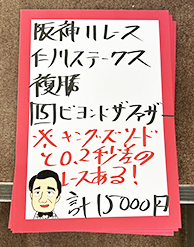 阪神11レース
仁川ステークス
複勝
15 ビヨンドザファザー
※キングズソード
と0.2秒差の
レースある!
計15000円